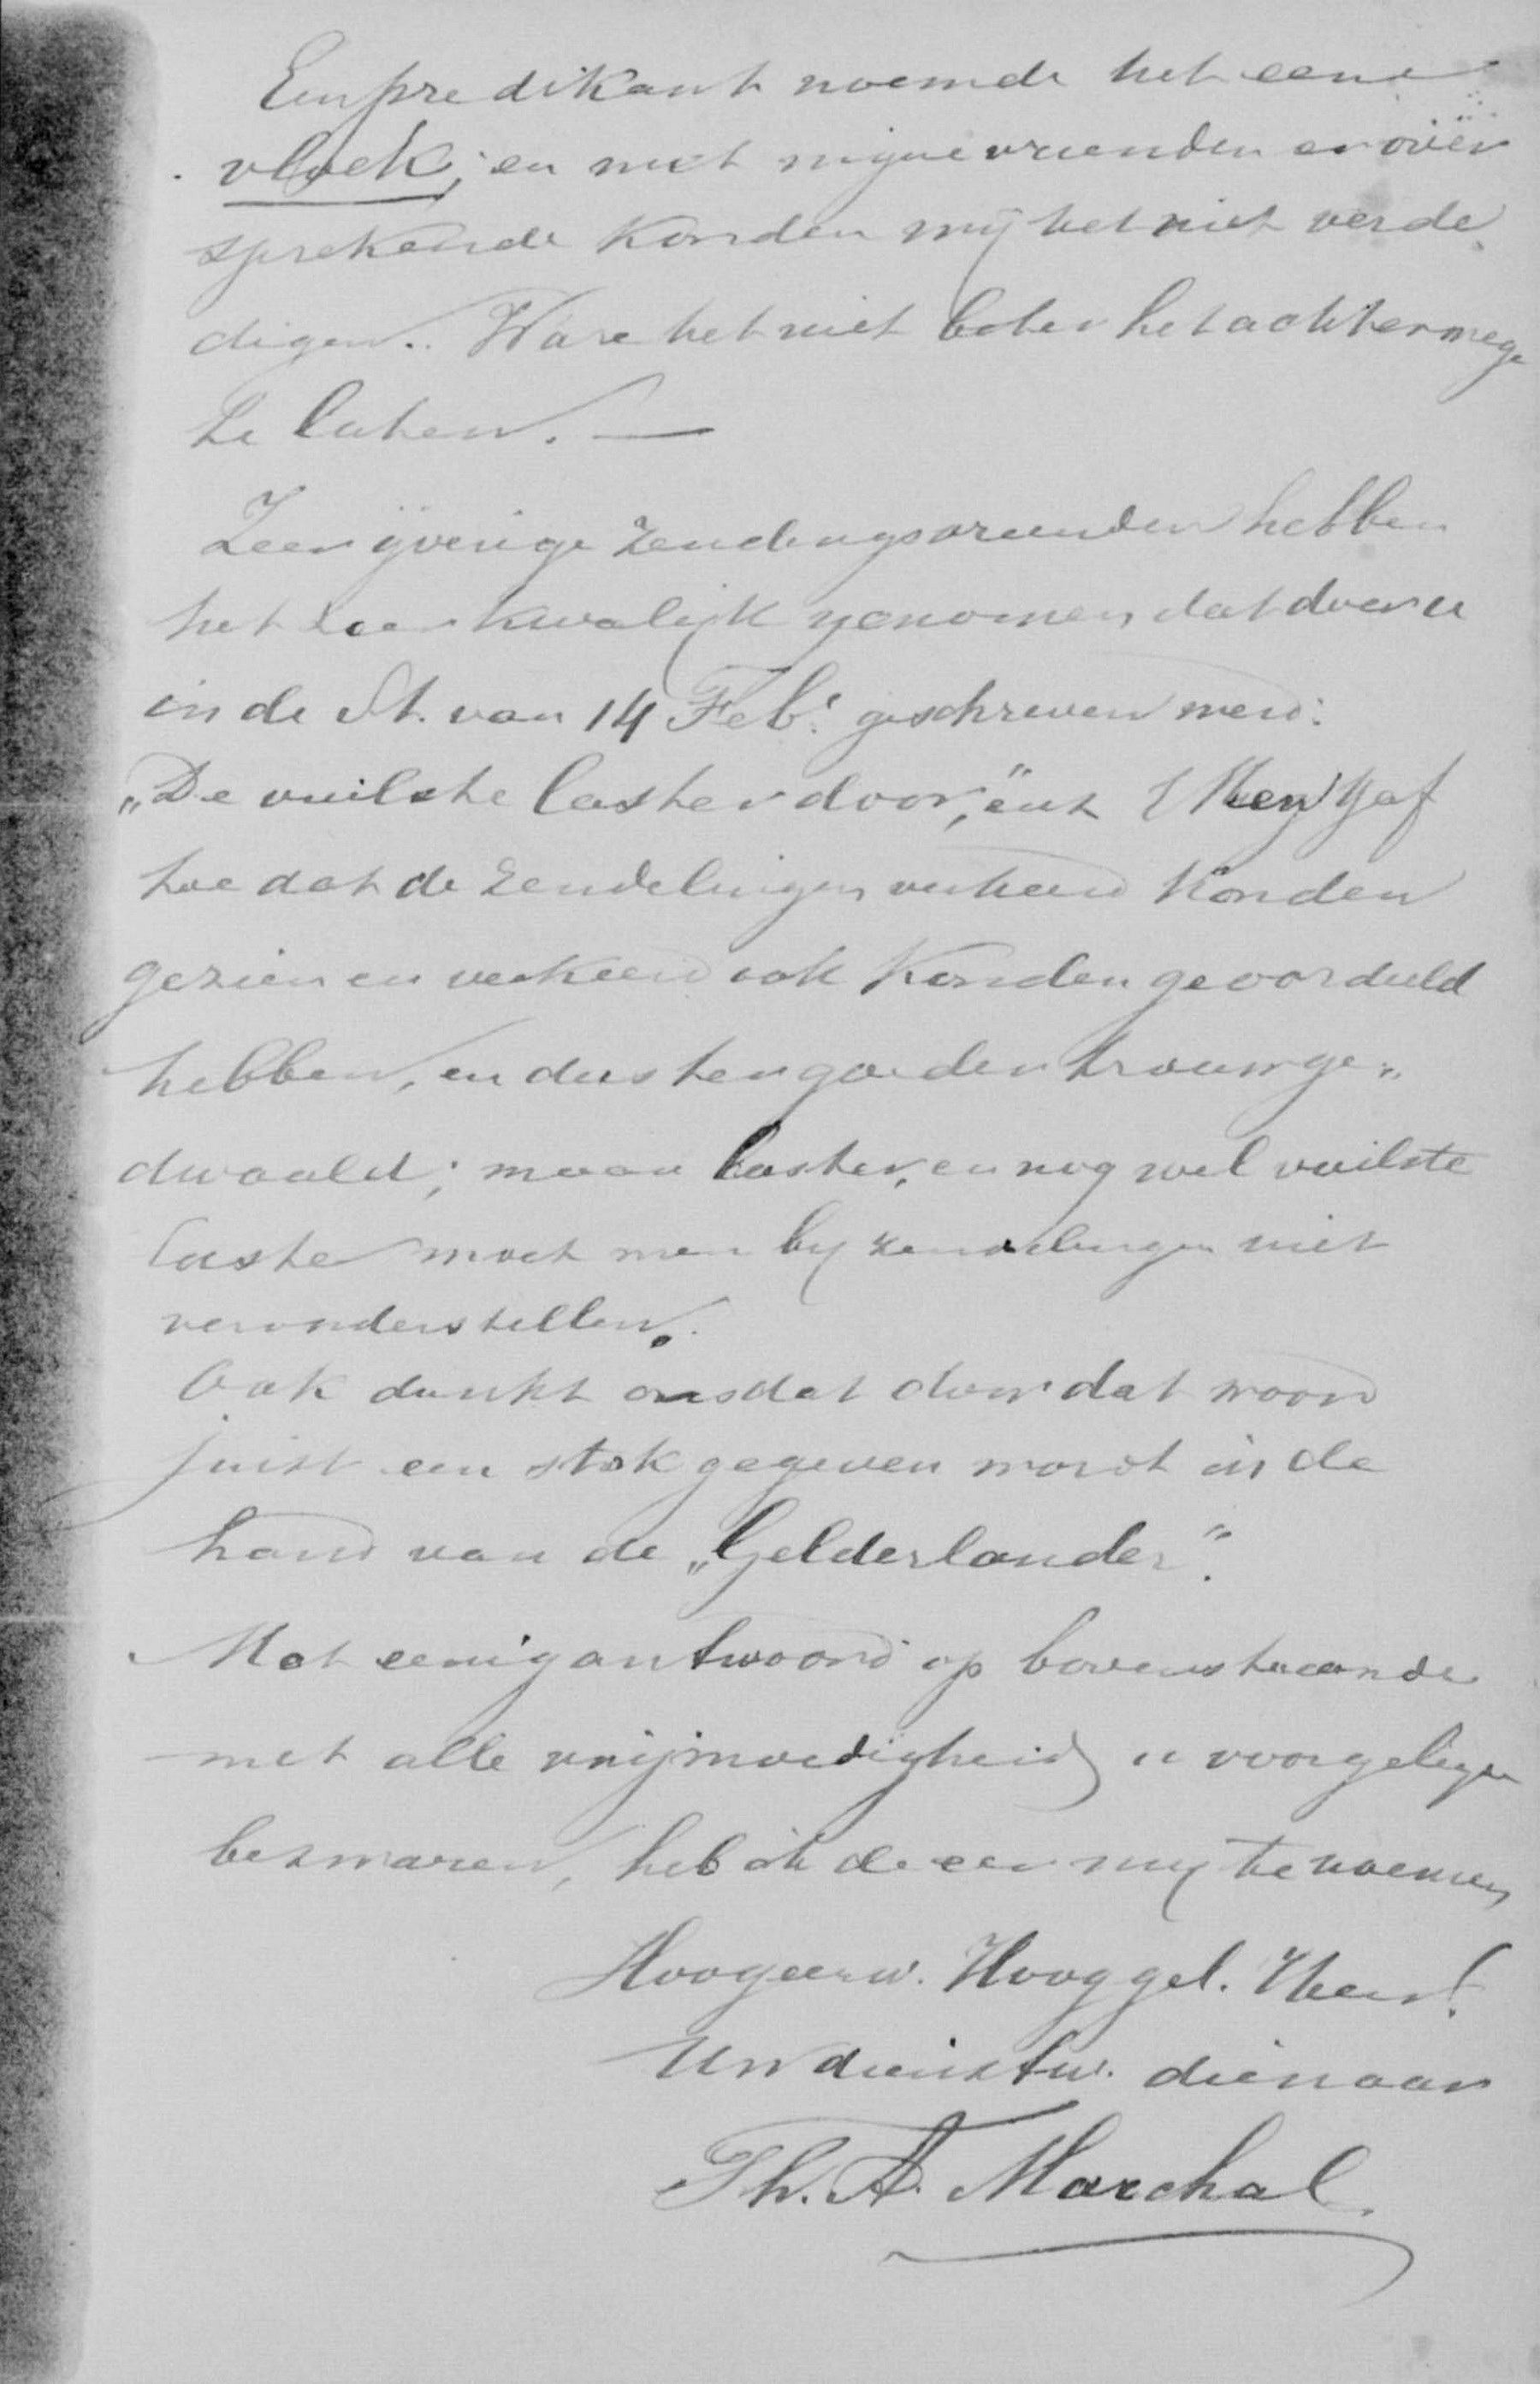 Een predikant noemde het eene
vloek; en met mijne vrienden er over
sprekende konden wij het niet verde
digen. Ware het niet beter het achterwege
te laten. —
Zeer ijverige Zendingsvrienden hebben
het zeer kwalijk genomen dat door u
in de St. van 14 Feb. geschreven werd:
„De vuilste laster door," enz Men gaf
toe dat de zendelingen verkeerd konden
gezien en verkeerd ook konden geoordeeld
hebben, en dus ter goeder trouw ge„
dwaald; maar laster, en nog wel vuilste
laster moet men bij zendelingen niet
veronderstellen.
Ook dunkt ons dat door dat woord
juist een stok gegeven wordt in de
hand van de „Gelderlander".
Met eenig antwoord op bovenstaande
met alle vrijmoedigheid u voorgelegde
bezwaren, heb ik de eer mij te noemen
Hoogeerw. Hooggel. Heer!
Uw dienstw. dienaar
Th. A. Marchal.